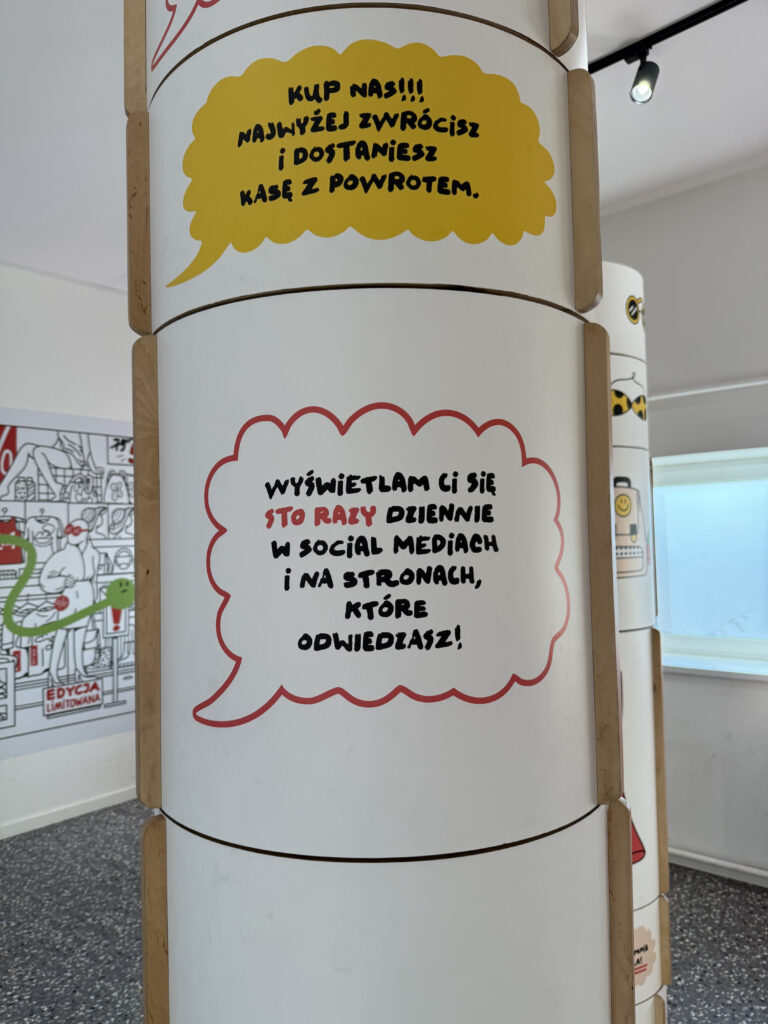 KUP NAS!!!
NAJWYŻEJ ZWRÓCISZ
I DOSTANIESZ
KASĘ Z POWROTEM.
WYŚWIETLAM CI SIĘ
STO RAZY DZIENNIE
W SOCIAL MEDIACH
I NA STRONACH,
KTÓRE
ODWIEDZASZ!
EDYCJA
LIMITOWANA